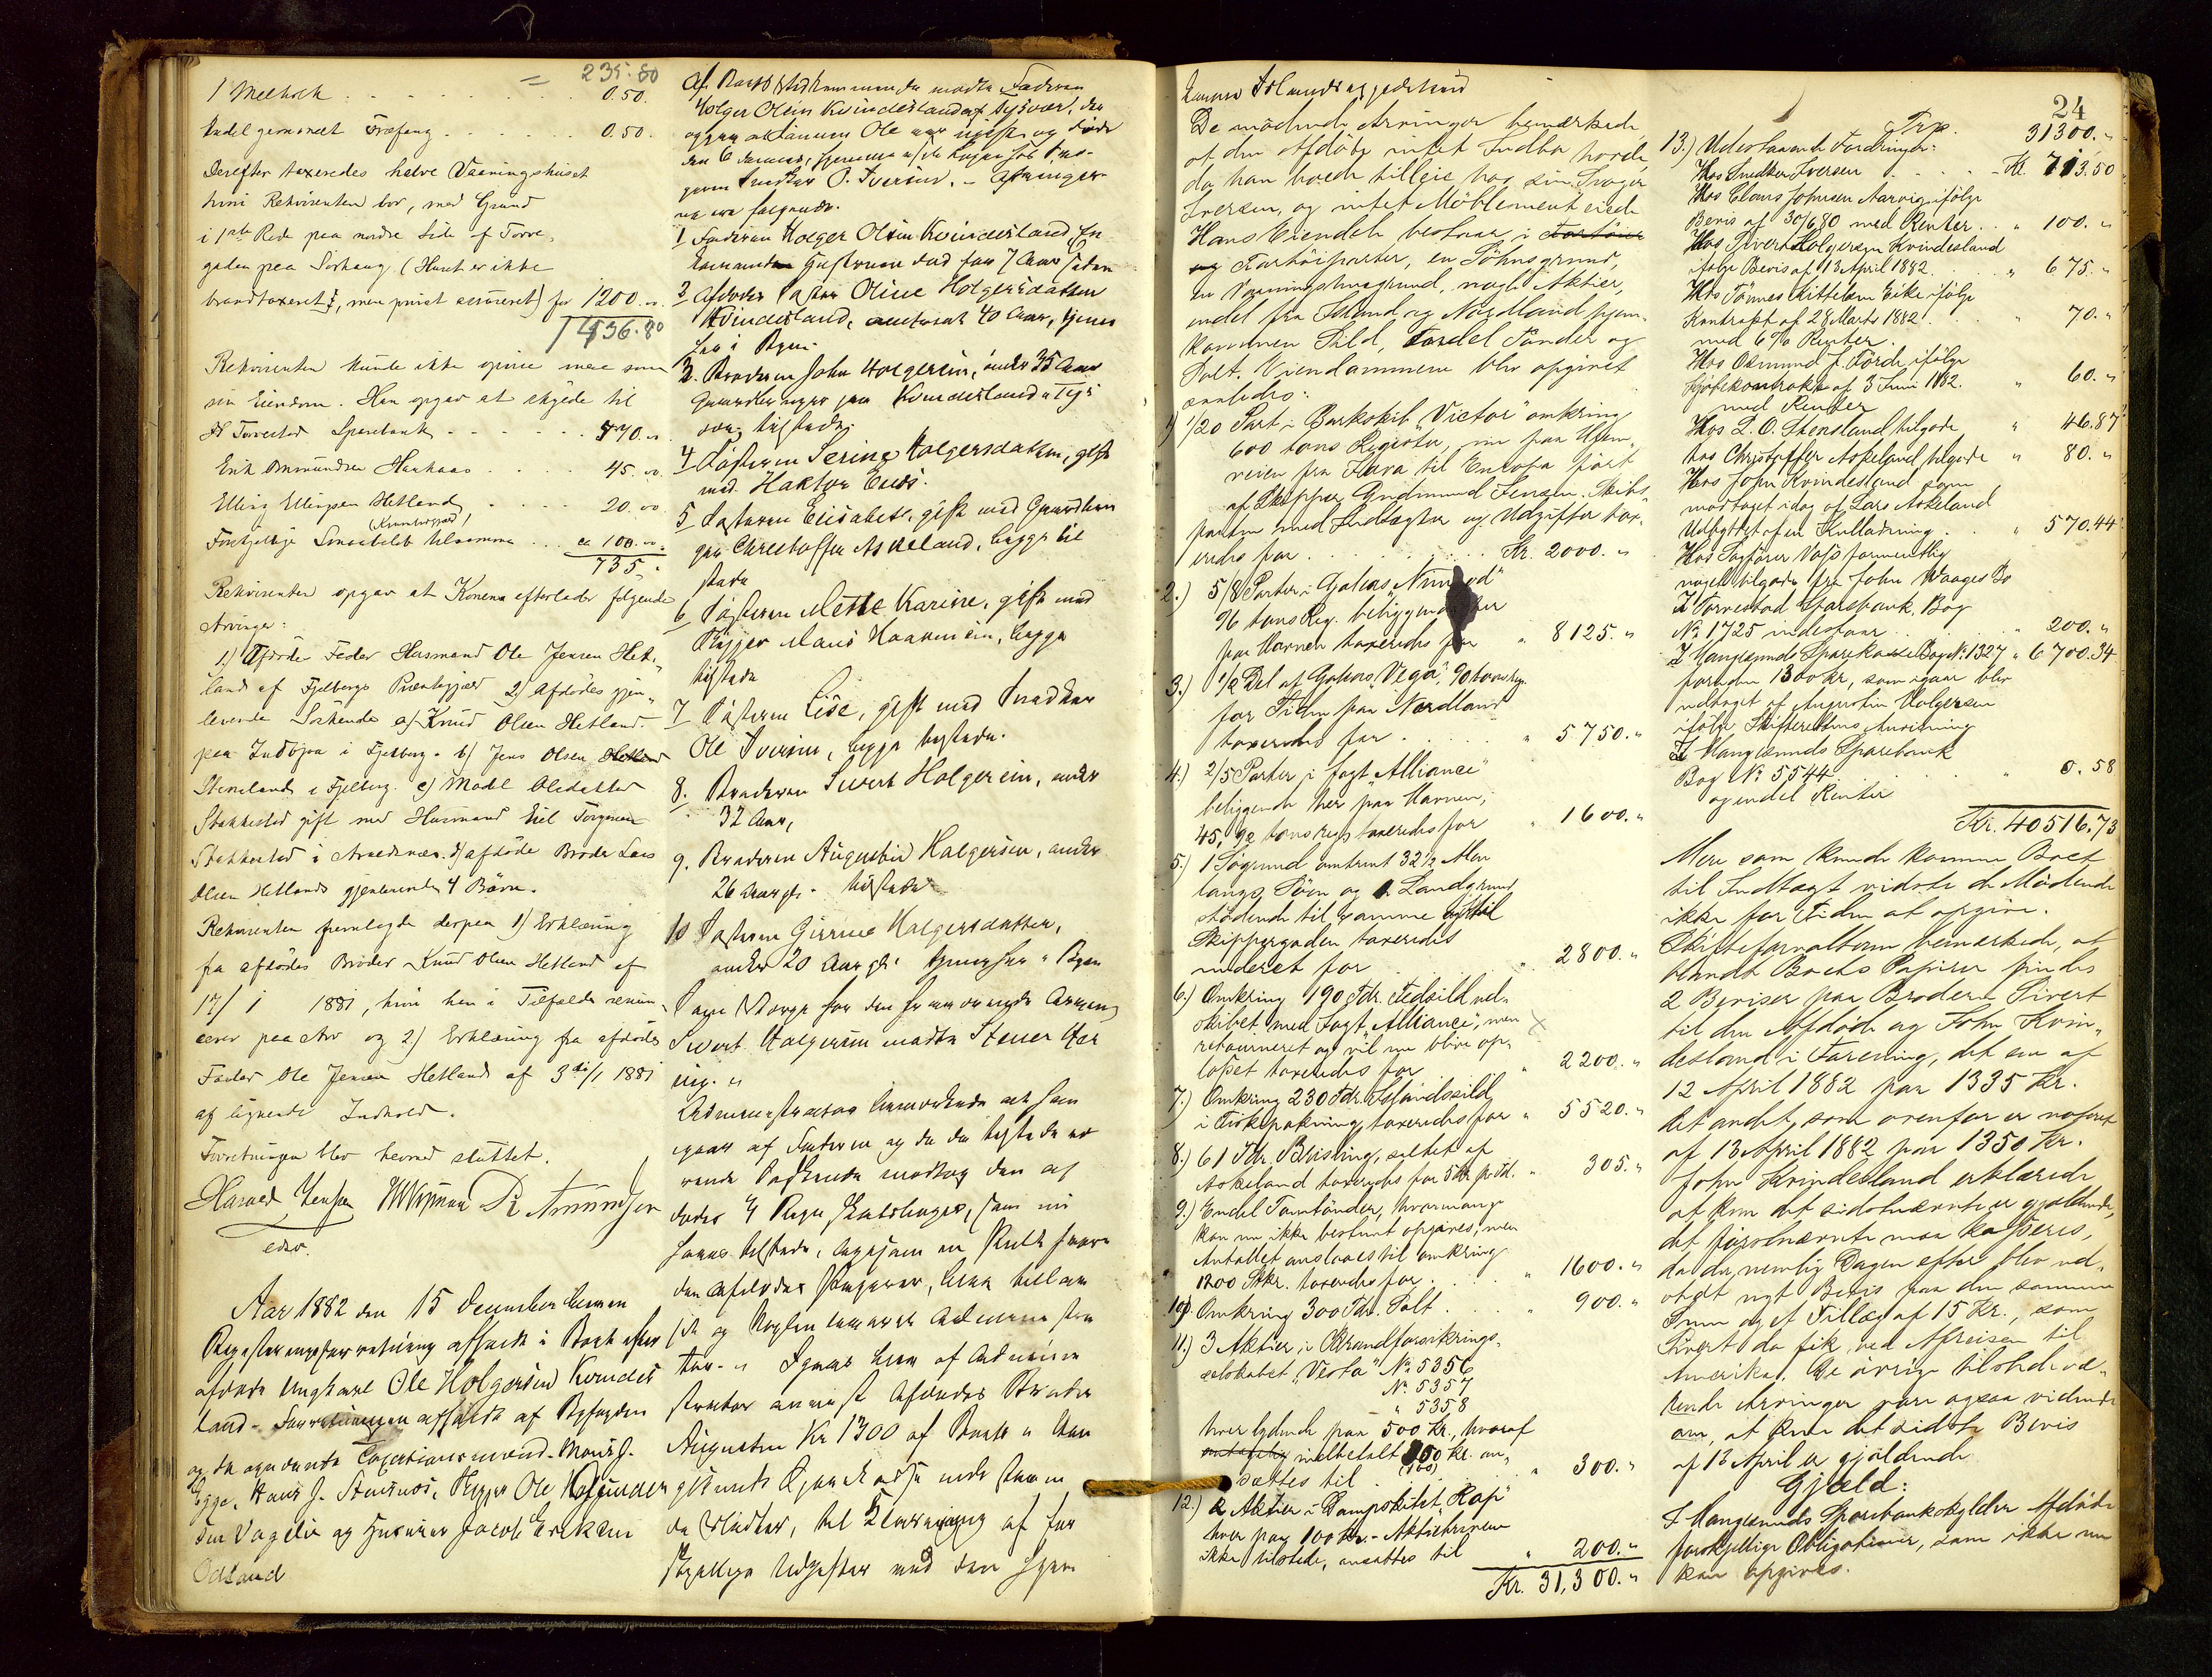 = 235.80
1 Melkok . . . 0.50.
Endel gemmelt Træfang . . . 0.50.
Derefter taxeredes halve Vaaningshuset
hvori Rekvirenten bor, med Grund
i 1ste Rode paa nordre Side af Torve-
gaden paa Sørhaug (Huset er ikke
brandtaxeret, men privat assureret) for 1200.00
1436.80
Rekvirenten kunde ikke opgive mere som
sin Eiendom. Han opgav at skylde til
Torvestad Sparebank . . . 570.00
Erik Asmundsen Haukaas . . . 45.00
Elling Ellingsen Hetland . . . 20.00
(Kramboegjæld)
Forskjellige Smaabeløb tilsammen . . . ca 100.00
735.
Rekvirenten opgav at Konens efterlader følgende
Arvinger:
1) Afdøde Fader Husmand Ole Jensen Het-
land af Fjelbergs Præstegjæld 2) afdødes gjen-
levende Søskende a) Knud Olsen Hetland
paa Indøjra i Fjelberg. b) Jens Olsen
Steneland i Fjelberg. c) Madel Olsdatter
Stakkestad gift med Husmand Eiel Torgersen
Stakkestad i Avaldsnæs. d) afdøde Broder Lars
Olsen Hetlands gjenlevende 4 Børn.
Rekvirenten fremlagde derpaa 1) Erklæring
fra afdødes Broder Knud Olsen Hetland af
17/1 1881, hvori han i Tilfælde renun-
cerer paa Arv og 2) Erklæring fra afdødes
Fader Ole Jensen Hetland af 3die/1 1881
af lignende Indhold.
Forretningen blev hermed sluttet.
Harald Jensen
edsv.
Aar 1882 den 15 December blev en
Registreringsforretning afholdt i Boet efter
afdøde Ungkarl Ole Holgersen Kvindes
land - Forretningen afholdt af Byfogden
og de opnævnte Taxationsmænd Mons J.
Egge, Hans J. Stensnes, Skipper Ole
sen Vagelie og Huseier Jacob Eriksen
Odland
Af Boets Vedkommende mødte Faderen
Holger Olsen Kvindesland af Tysvær, der
opgav at Sønnen Ole var ugift og døde
den 6 December, hjemme i sit Logis hos Sva-
geren Snedker O. Iversen. - Arvinger
ne ere følgende.
1 Faderen Holger Olsen Kvindesland, En
kemand Hustruen død for 7 Aar siden
2 Afdødes Søster Oline Holgersdatter
Kvindesland, omtrent 40 Aar, tjener
her i Byen
3. Broderen John Holgersen, under 35 Aar
Gaardbruger paa Kvindesland i Tys
vær tilstede.
4 Søsteren Serine Holgersdatter, gift
med Haktor Eides.
5 Søsteren Elisabet, gift med Gaardbru
ger Christoffer Askeland, begge til
stede
6 Søsteren Mette Karine, gift med
Skipper Mons Haavesen, begge
tilstede
7 Søsteren Lise, gift med Snedker
Ole Iversen, begge tilstede.
8. Broderen Sivert Holgersen, under
32 Aar,
9. Broderen Augustin Holgersen, under
26 Aar gl. tilstede
10 Søsteren Gurine Holgersdatter,
under 20 Aar gl. tjener her i Byen
Som Værge for den fraværende Arving
Sivert Holgersen mødte Stener Her
vig.
Administrator bemærkede at han
igaar af Faderen og de da tilstede væ
rende Søskende modtog den af
dødes 4 Regnskabsbøger, som nu
haves tilstede, ligesom en Pult hvori
den afdødes Papirer, blev lukket
ført og Nøglen leveret Administra
tor. Igaar blev af Admini
strator anvist Afdødes Broder
Augustin Kr 1300 af Boets i Hau
gesunds Sparekasse indestaaen
de Midler, til Bestridelse af for
skjellige Udgifter med den hjem
komne Islandsexpedition
De mødende Arvinger bemærkede
at den Afdøde intet Indbo havde
da han boede tilleie hos sin Svoger
Iversen, og intet Møblement eiede
Hans Eiendele bestaar i
Fartøiparter, en Søhusgrund,
en Vaaningshusgrund, nogle Aktier,
endel fra Island og Nordland hjem-
kommen Sild, endel Tønder og
Salt. Eiendommene blev opgivet
saaledes:
1) 1/20 Part i Barkskib "Victor" omkring
600 tons Register, nu paa Hjem-
reien fra Java til Europa ført
af Skipper Gudmund Jensen. Skibs-
parten med Indtægter og Udgifter tax-
eredes for . . . Kr. 2000. "
2.) 5/8 Parter i Galeas "Nimrod"
96 tons Reg. beliggende her
paa Havnen taxeredes for " 8125. "
3.) 1/2 Del af Galeas "Vega", 90 tons Reg.
for Tiden paa Nordland
taxeredes for . . . " 5750. "
4.) 2/5 Parter i Jagt "Alliance"
beliggende her paa Havnen,
45,92 tons reg. taxeredes for " 1600. "
5.) 1 Søgrund omtrent 32 1/2 Alen
langs Søen og 1 Landgrund
stødende til samme og til
Skippergaden taxeredes
vurderet for " 2800. "
6.) Omkring 190 Tdr. Fedsild ud-
skibet med Jagt "Alliance", men
retourneret og vil nu blive op-
losset taxeredes for " 2200. "
7.) Omkring 230 Tdr. Islandssild
i Fiskepakning taxeredes for " 5520. "
8.) 61 Tdr. Brisling, saltet af
Askeland taxeredes for 5 Kr pr Td. " 305. "
9.) Endel Tomtønder, hvormange
kan nu ikke bestemt opgives, men
Antallet anslaaes til omkring
1200 Stkr. taxeredes for . . . " 1600. "
10. Omkring 300 Tdr. Salt . . . " 900. "
11.) 3 Aktier i Brandforsikrings-
selskabet "Vesta" No. 5356
No. 5357
" 5358
hver lydende paa 500 Kr., hvoraf
indbetalt 100 Kr. an-
(100)
sættes til " 300. "
12.) 2 Aktier i Dampskibet "Rap"
hver paa 100 Kr. - Aktiebrevene
ikke tilstede, ansattes til " 200. "
Kr. 31,300. "
24
Trp. 31300. "
13.) Udestaaende Fordringer:
Hos Snedker Iversen . . . Kr. 713.50
Hos Claus Johnsen Aarvig ifølge
Bevis af 30/6 80 med Renter . . " 100. "
Hos Sivert Holgersen Kvindesland
ifølge Bevis af 13 April 1882 . . . " 675. "
Hos Tønnes Kittelsen Eike ifølge
Kontrakt af 28 Marts 1882 . . . " 70. "
med 6% Renter.
Hos Osmund J. Førde ifølge
Kjøbekontrakt af 3 Juni 1882. " 60. "
med Renter
Hos L. O. Stensland tilgode " 46.87
hos Christoffer Askeland tilgode " 80. "
Hos John Kvindesland som
modtaget idag af Lars Askeland
Udbyttet af en Kulladning . " 570.44
Hos Sagfører Vas formentlig
noget tilgode fra John Waages Bo
I Torvestad Sparebank Bog
No 1725 indestaar . . . " 200. "
I Haugesunds Sparekasse Bog No. 1327 " 6700.34
foruden 1300 Kr, som igaar blev
udtaget af Augustin Holgersen
ifølge Skifterettens Anvisning
I Haugesunds Sparebank
Bog No 5544 " 0.58
og endel Renter
Kr. 40516.73
Mere som kunde komme Boet
til Indtægt vidste de Mødende
ikke for Tiden at opgive.
Skifteforvalteren bemærkede, at
blandt Boets Papirer findes
2 Beviser fra Broderen Sivert
til den Afdøde og John Kvin-
desland i Forening, det ene af
12 April 1882 paa 1335 Kr.
det andet, som ovenfor er noteret
af 13 April 1882 paa 1350 Kr.
John Kvindesland erklærede
at kun det sidstnævnte er gjældende,
det førstnævnte maa kasseres,
da der nemlig Dagen efter blev ud-
stedt nyt Bevis paa den samme
Sum og et Tillæg af 15 Kr., som
Sivert da fik ved Afreisen til
Amerika. De øvrige tilstedevæ-
rende Arvinger vare ogsaa vidende
om, at kun det sidste Bevis
af 13 April er gjældende
Gjæld:
I Haugesunds Sparebank skylder Afdøde
forskjellige Obligationer, som ikke nu
kan opgives.